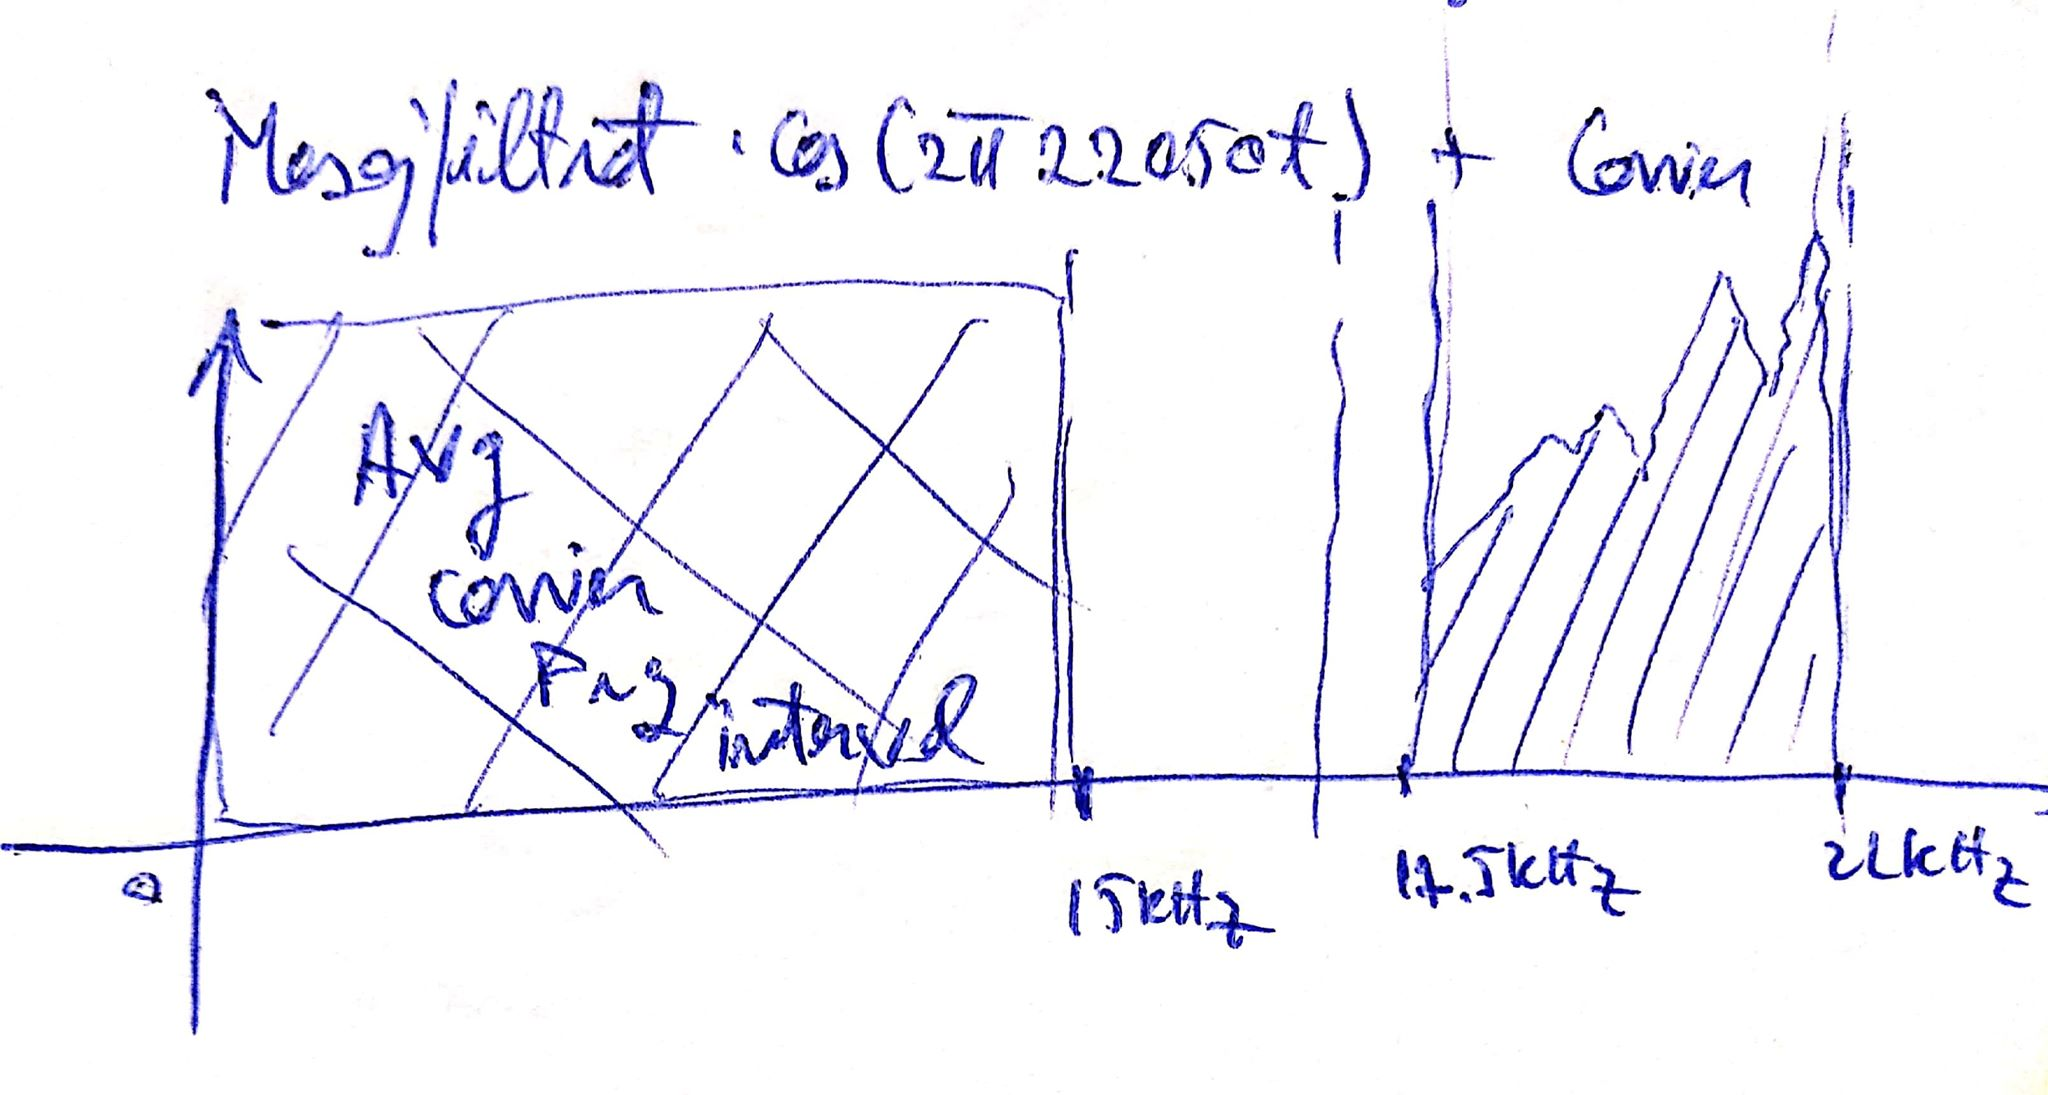 Mesaj filtrat · cos(2π22050t) + Carrier
Avg
carrier
Frq
interval
0
15kHz
17.5kHz
22kHz